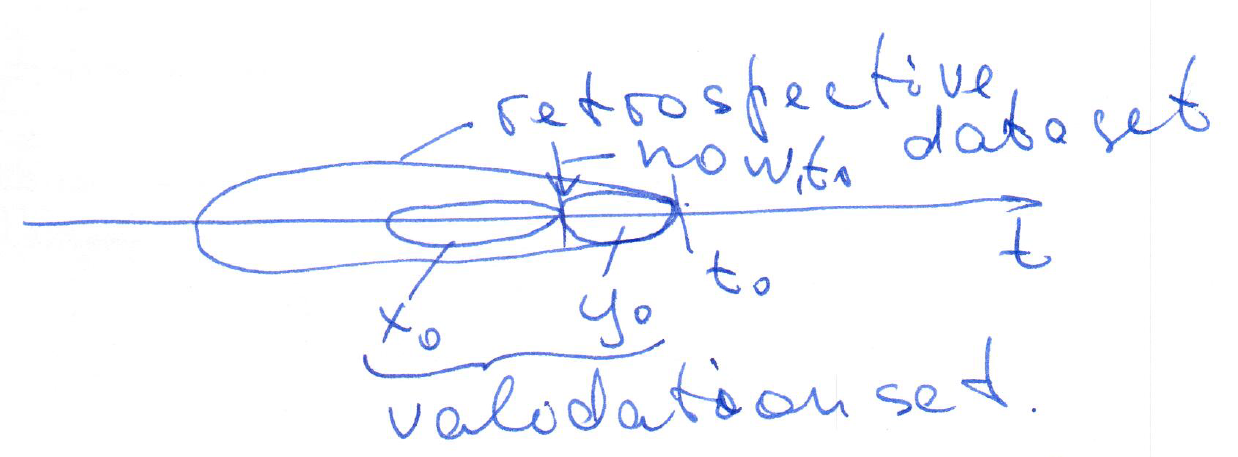 retrospective
dataset
now, t₀
t
t₀
x₀
y₀
valodation set.